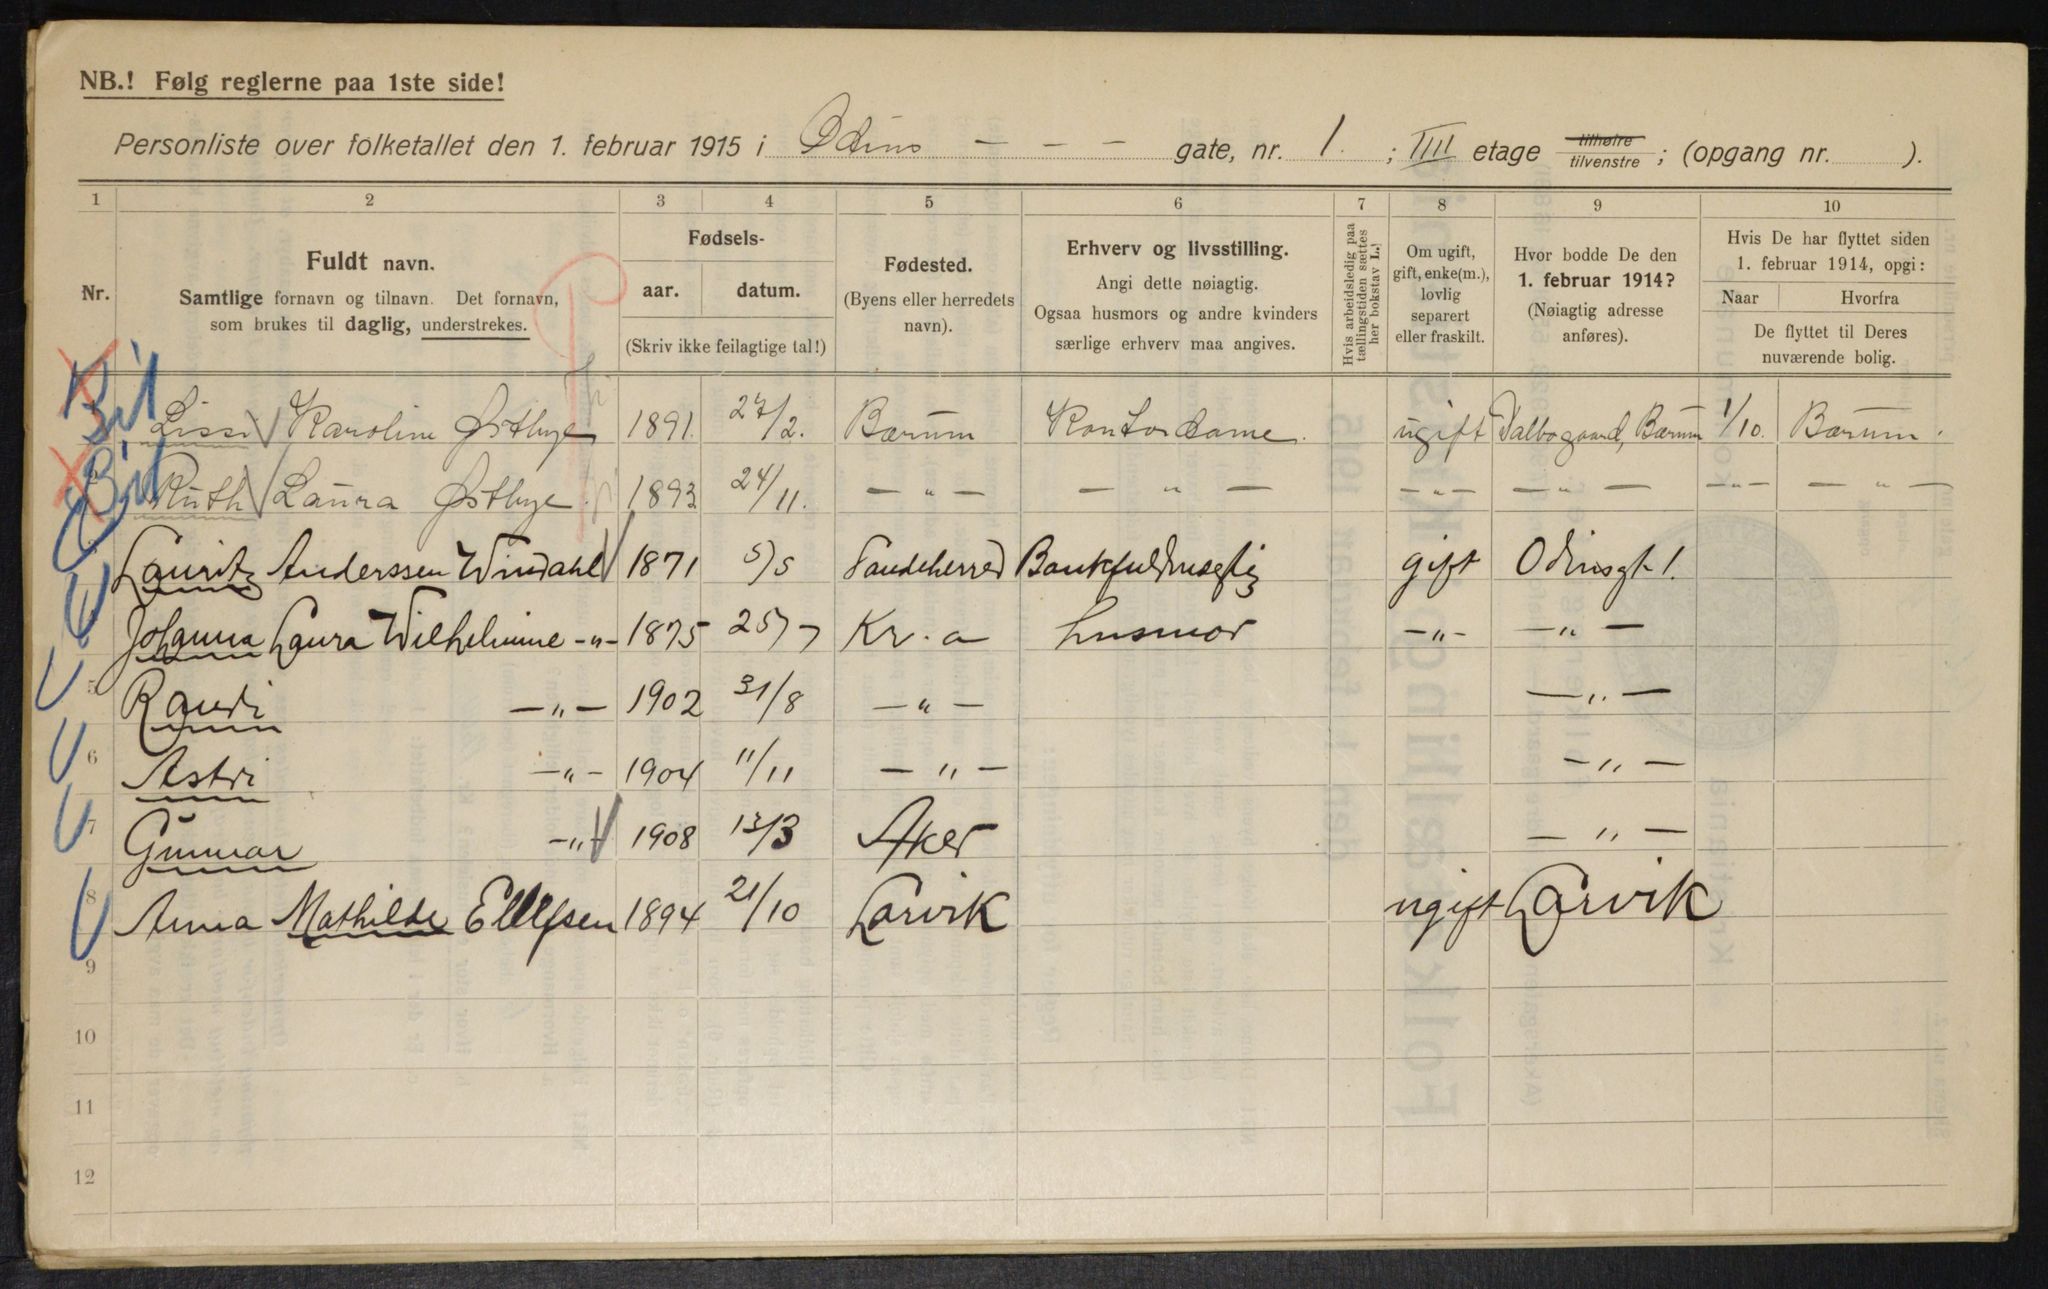 NB.! Følg reglerne paa 1ste side!
Personliste over folketallet den 1. februar 1915 i Odins — — — gate, nr. 1. ; IIII etage tilhøire/tilvenstre ; (opgang nr. ).
1 2 3 4 5 6 7 8 9 10
Nr.
Fuldt navn.
Samtlige fornavn og tilnavn. Det fornavn,
som brukes til daglig, understrekes.
Fødsels-
aar. datum.
(Skriv ikke feilagtige tal!)
Fødested.
(Byens eller herredets
navn).
Erhverv og livsstilling.
Angi dette nøiagtig.
Ogsaa husmors og andre kvinders
særlige erhverv maa angives.
Hvis arbeidsledig paa
tællingstiden sættes
her bokstav L.!
Om ugift,
gift, enke(m.),
lovlig
separert
eller fraskilt.
Hvor bodde De den
1. februar 1914?
(Nøiagtig adresse
anføres).
Hvis De har flyttet siden
1. februar 1914, opgi:
Naar Hvorfra
De flyttet til Deres
nuværende bolig.
Bil
Lissi Karoline Østbye 1891. 27/2. Bærum Kontordame. ugift Valbogaard, Bærum 1/10. Bærum.
Bil
Ruth Laura Østbye 1893 24/11. — " — — " — — " — — " — — " — — " —
Lauritz Anderssen Windahl 1871 5/5 Sandeherred Bankfuldmægtig gift Odinsgt 1.
Johanna Laura Wilhelmine -"- 1875 25/7 Kr.a husmor — " — — " —
5 Randi — " — 1902 31/8 — " — — " —
6 Astri — " — 1904 11/11 — " — — " —
7 Gunnar — " — 1908 13/3 Aker — " —
8 Anna Mathilde Ellefsen 1894 21/10 Larvik ugift Larvik
9
10
11
12